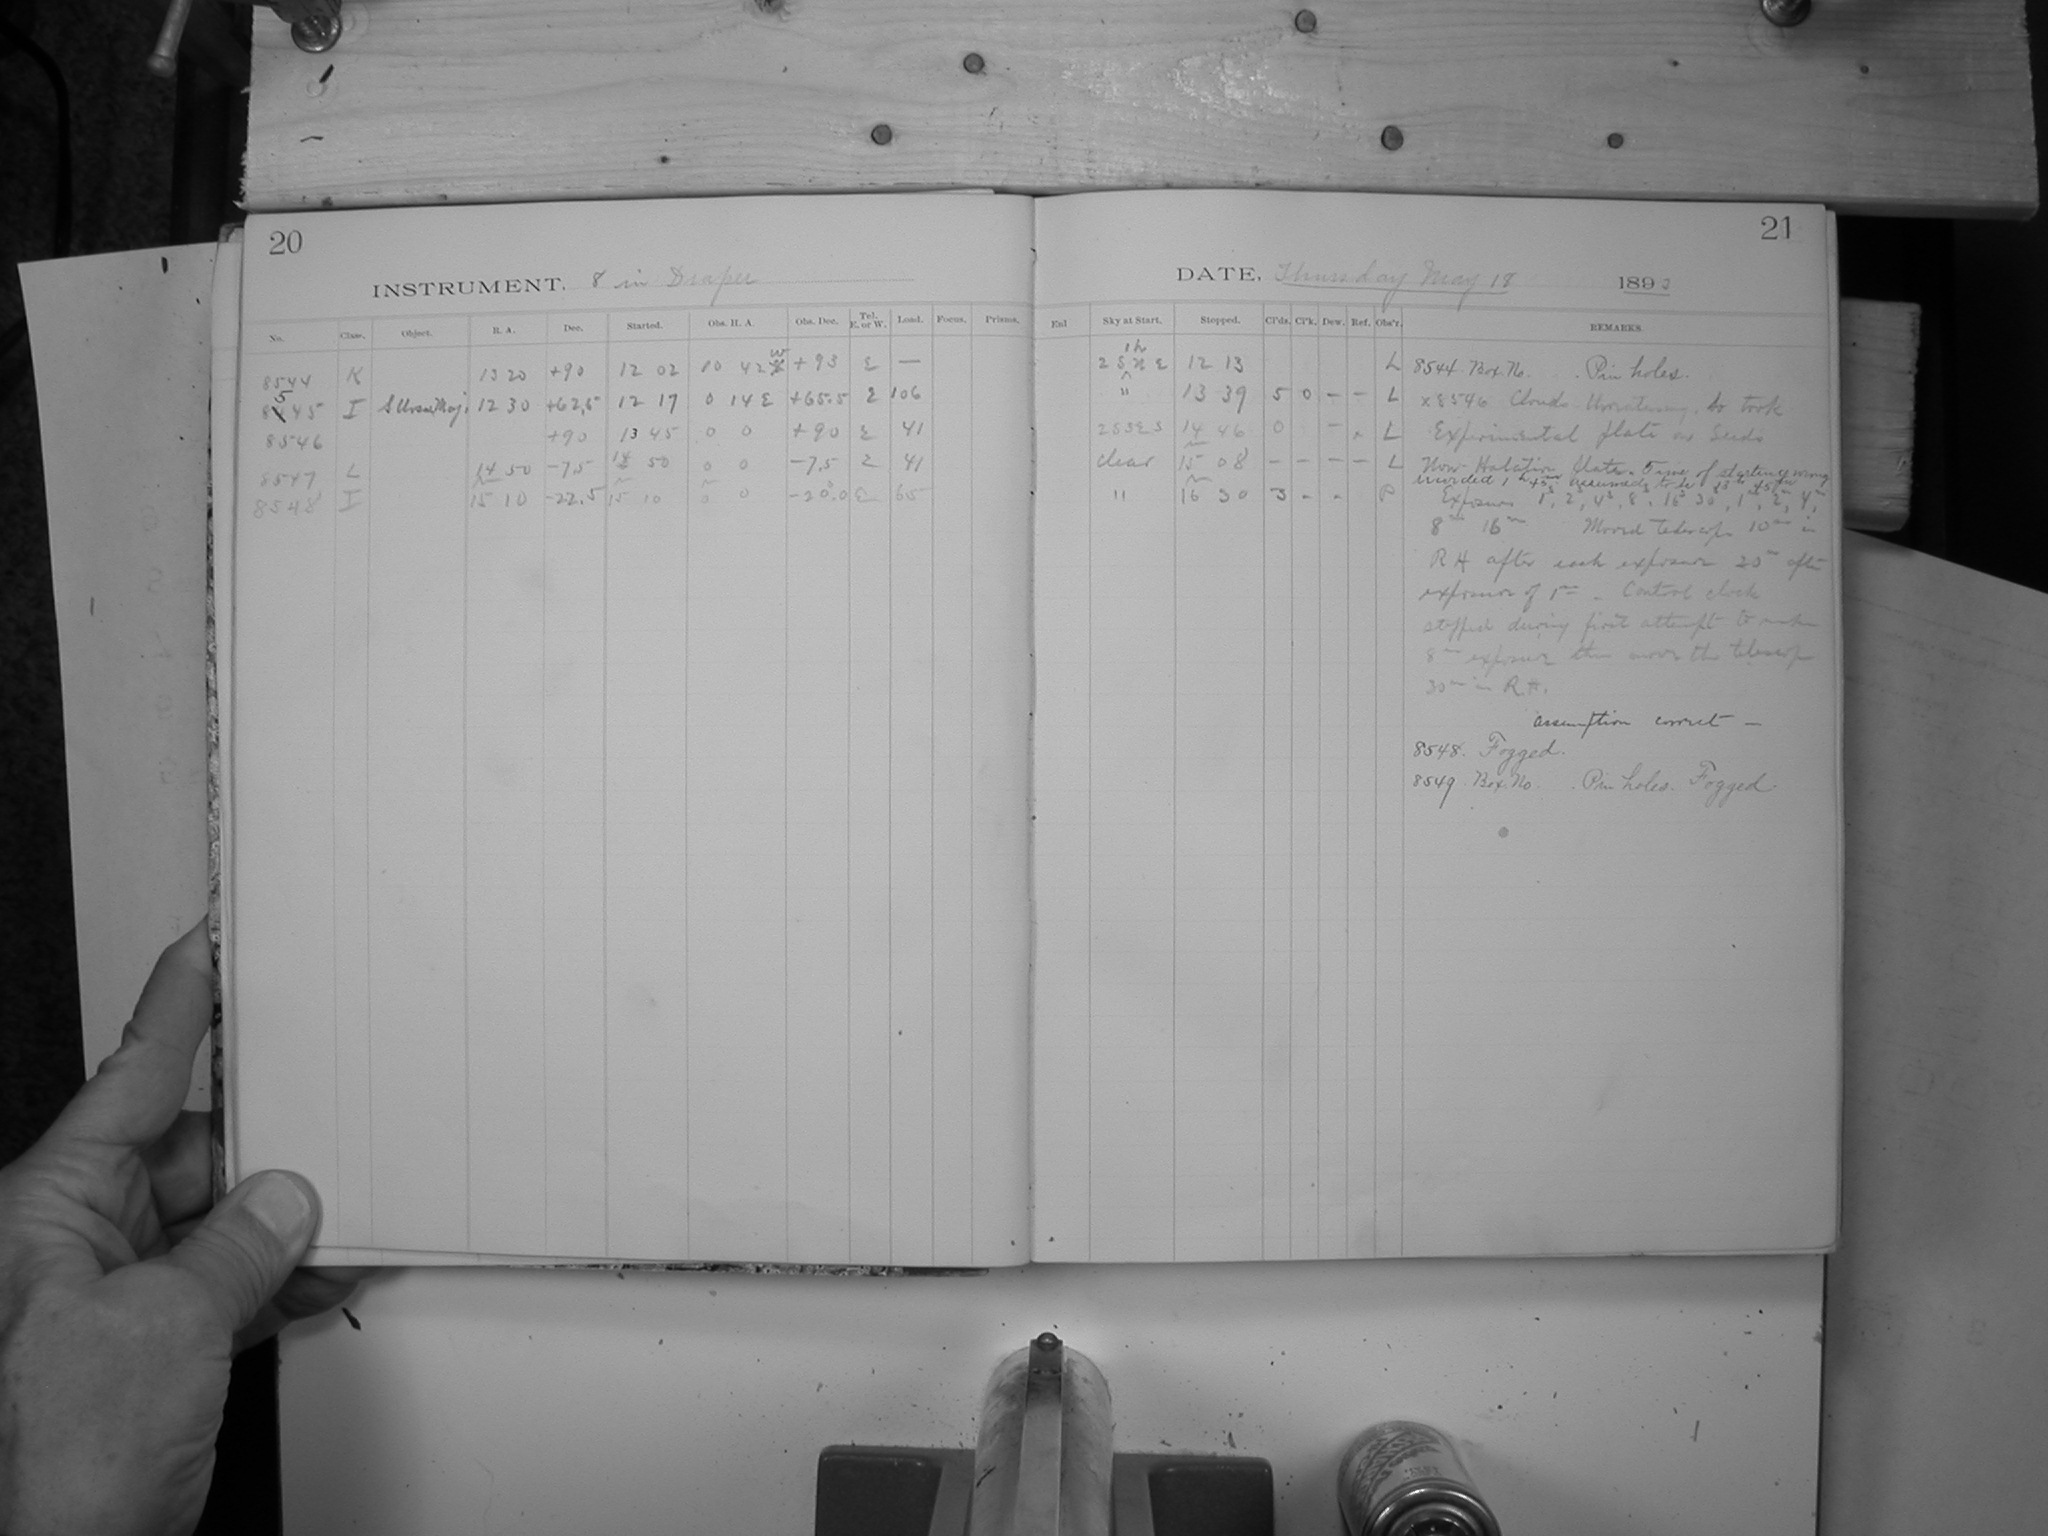 20
INSTRUMENT. 8 in Draper
No. Class. Object. R. A. Dec. Started. Obs. H. A. Obs. Dec. Tel. E. or W. Load. Focus. Prisms.
8544 K 13 20 +90 12 02 10 42 W +93 E —
8545 I S Ursae Maj. 12 30 +62.5 12 17 0 14 E +65.5 E 106
8546 +90 13 45 0 0 +90 E 41
8547 L 14 50 -7.5 14 50 0 0 -7.5 E 41
8548 I 15 10 -22.5 15 10 0 0 -20.0 E 65
21
DATE. Thursday May 18 1893
Enl Sky at Start. Stopped. Cl'ds. Cl'k. Dew. Ref. Obs'r. REMARKS.
12 13 L 8544. Box No. . Pin holes.
" 13 39 5 0 - - L x8546 Clouds threatening, so took
14 46 0 - L Experimental plate on Seeds
clear 15 08 - - - - L Non-Halation plate. Time of starting wrong
recorded assumed to be 13h 45m
" 16 30 3 - - P Exposures 1s, 2s, 4s, 8s, 16s 30s, 1m, 2m, 4m,
8m 16m Moved telescope 10m in
R A after each exposure 20m after
exposure of 1m. Control clock
stopped during first attempt to make
8m exposure then move the telescope
30m in R A.
assumption correct —
8548. Fogged.
8549. Box No. . Pin holes. Fogged.